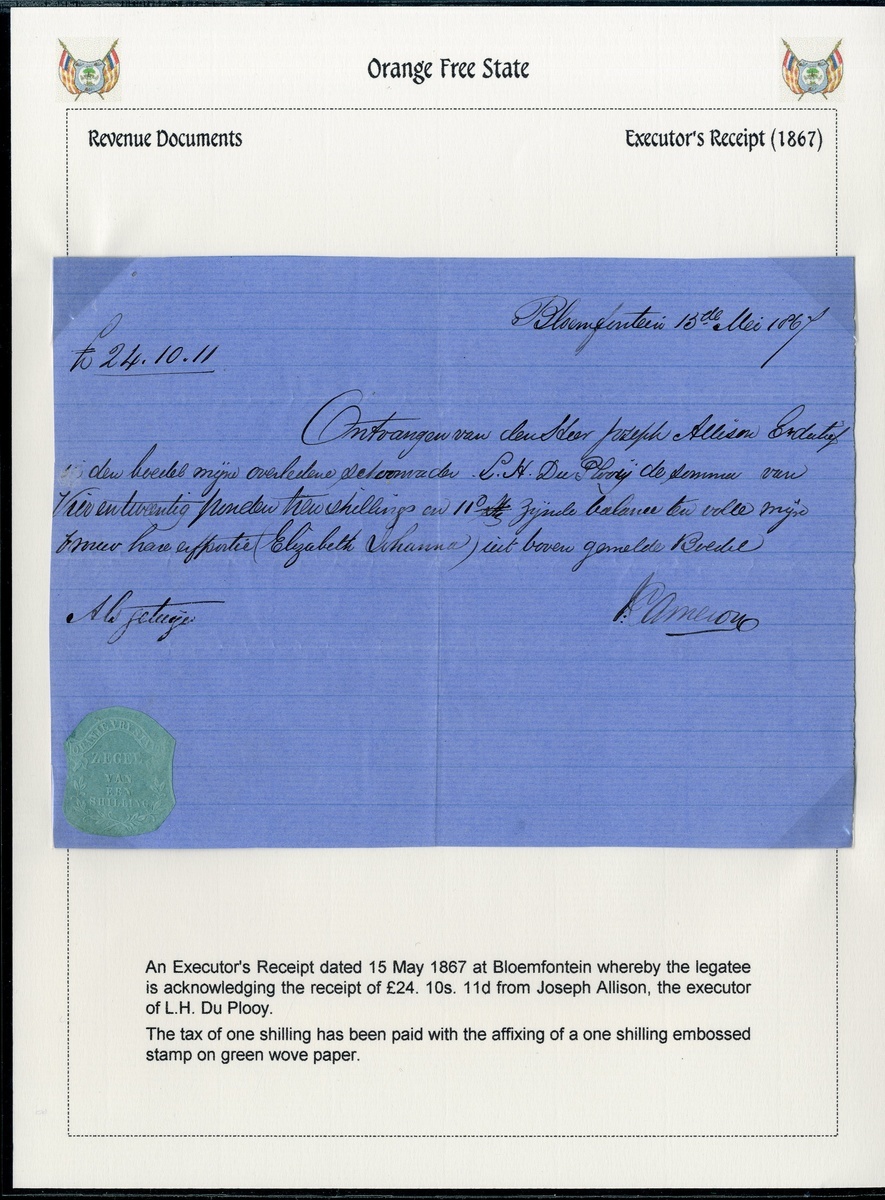 Orange Free State
Revenue Documents
Executor's Receipt (1867)
Bloemfontein 15de Mei 1867
£ 24.10.11
Ontvangen van den Heer Joseph Allison
den boedel mijn overledene schoonvader L. H. Du Plooij de somma van
Vier en twentig ponden tien shillings en 11d zijnde balance ten volle mijn
vrouw hare erfportie (Elizabeth Johanna) uit boven gemelde Boedel
Als getuige
Cameron
ZEGEL
VAN
EEN
SHILLING
An Executor's Receipt dated 15 May 1867 at Bloemfontein whereby the legatee
is acknowledging the receipt of £24. 10s. 11d from Joseph Allison, the executor
of L.H. Du Plooy.
The tax of one shilling has been paid with the affixing of a one shilling embossed
stamp on green wove paper.